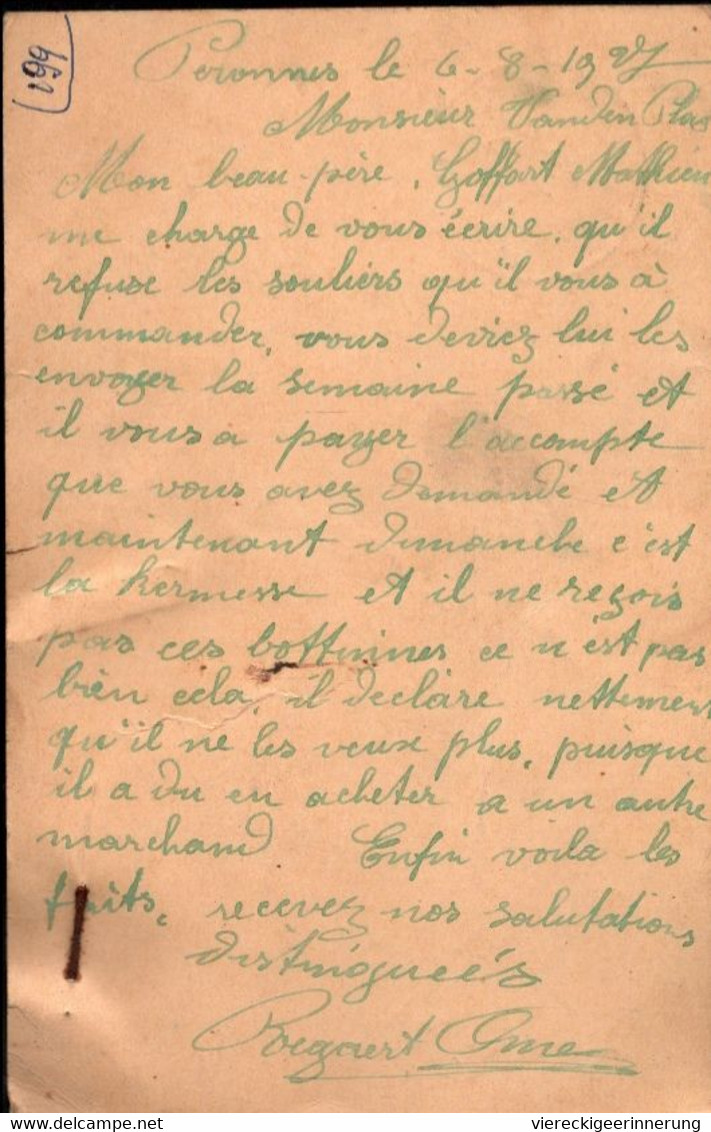 199
Peronnes le 6-8-1927
Monsieur Vanden Plas
Mon beau-père, Goffart Mathieu
me charge de vous écrire, qu'il
refuse les souliers qu'il vous à
commander, vous deviez lui les
envoyer la semaine passé et
il vous a payer l'accompte
que vous avez demandé et
maintenant dimanche c'est
la kermesse et il ne reçois
pas ces bottinnes ce n'est pas
bien cela, il declare nettement
qu'il ne les veux plus, puisque
il a du en acheter a un autre
marchand Enfin voila les
faits, recevez nos salutations
distinguées
Bogaert
delcampe.net
viereckigeerinnerung